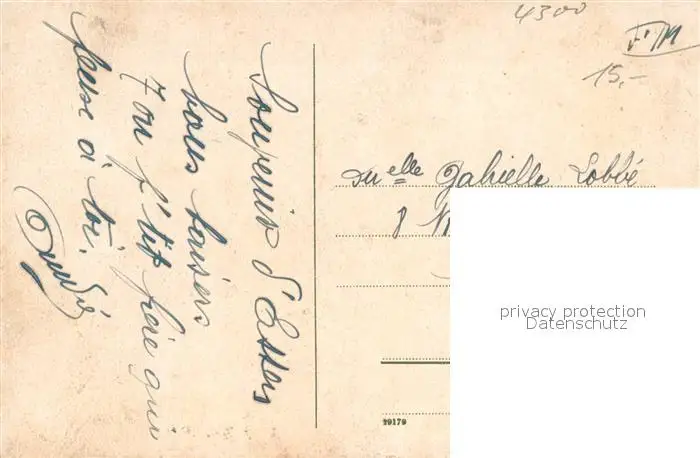 4300
F'M
15,-
Souvenir d'Essen
bons baisers
Ton p'tit frère qui
pense à toi.
André
Melle Gabrielle Lobbé
8
29179
privacy protection
Datenschutz